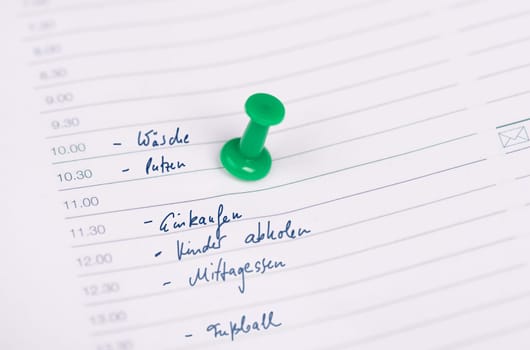 7.30
8.00
8.30
9.00
9.30
10.00 - Wäsche
10.30 - Putzen
11.00
11.30 - Einkaufen
12.00 - Kinder abholen
12.30 - Mittagessen
13.00
13.30 - Fußball